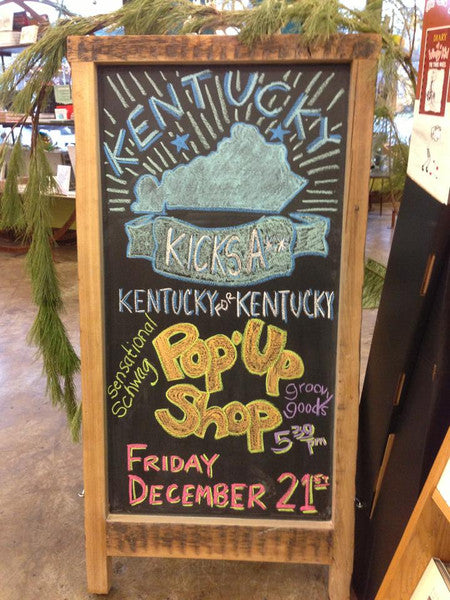 KENTUCKY
KICKS A**
KENTUCKY FOR KENTUCKY
Sensational
Schwag
Pop·Up
Shop
groovy
goods
5 30 pm
FRIDAY
DECEMBER 21ST
DIARY